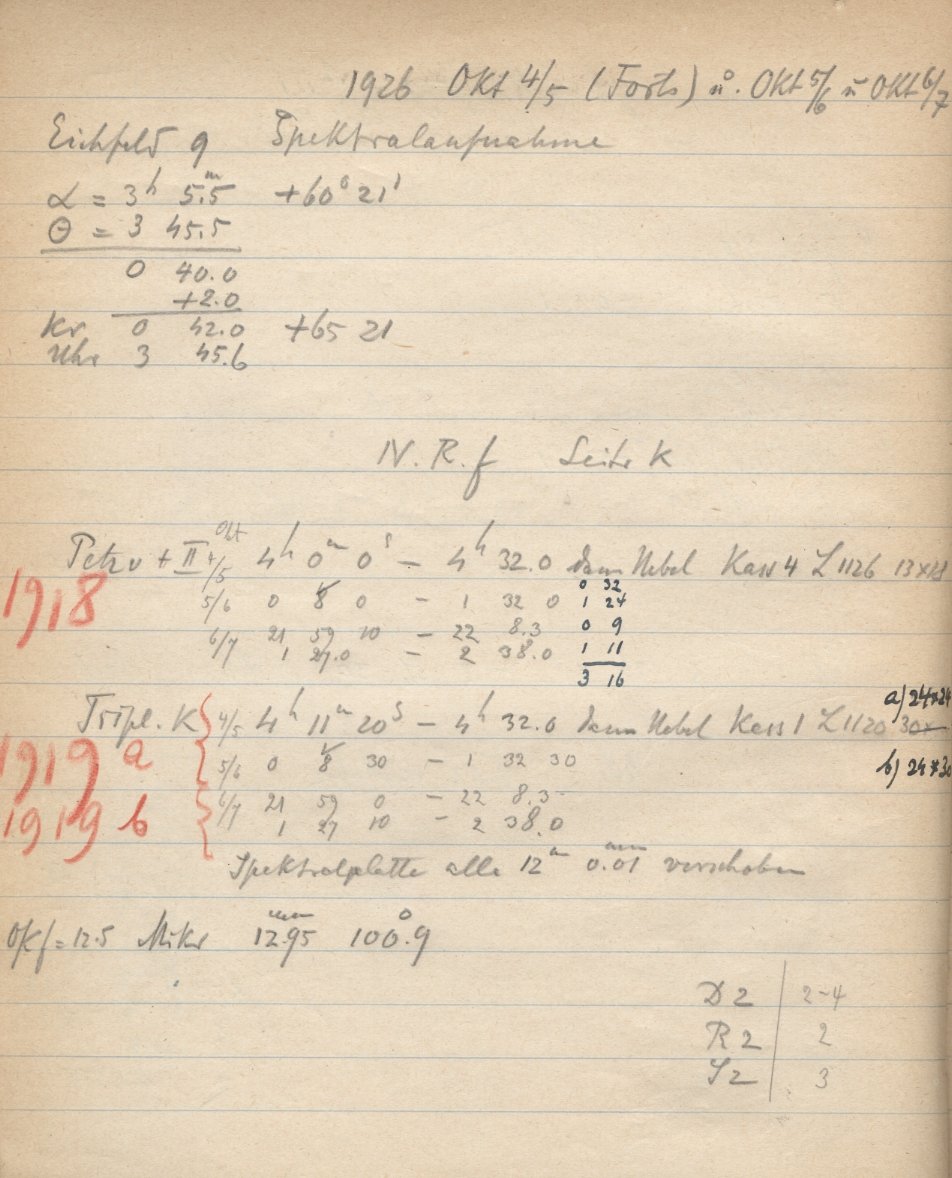 1926 Okt 4/5 (Forts) u. Okt 5/6 u Okt 6/7
Eichfeld 9 Spektralaufnahme
α = 3h 5.5m +60° 21'
Θ = 3 45.5
0 40.0
+2.0
Kr 0 42.0 +65 21
Uhr 3 45.6
N.R.f Seite K
Petzv + II Okt 4/5 4h 0m 0s – 4h 32.0 dann Nebel Kass 4 L 1126
0 32
5/6 0 8 0 – 1 32 0 1 24
6/7 21 59 10 – 22 8.3 0 9
1 27.0 – 2 38.0 1 11
3 16
1918
Tripl. K 4/5 4h 11m 20s – 4h 32.0 dann Nebel Kass 1 L 1120
a) 24×24
5/6 0 8 30 – 1 32 30
b) 24×30
1919 a
6/7 21 59 0 – 22 8.3
1 27 10 – 2 38.0
1919 b
Spektralplatte alle 12m 0.01mm verschoben
Okf = 12.5 Mikr 12.95mm 100.9°
D 2 | 2-4
R 2 | 2
S 2 | 3